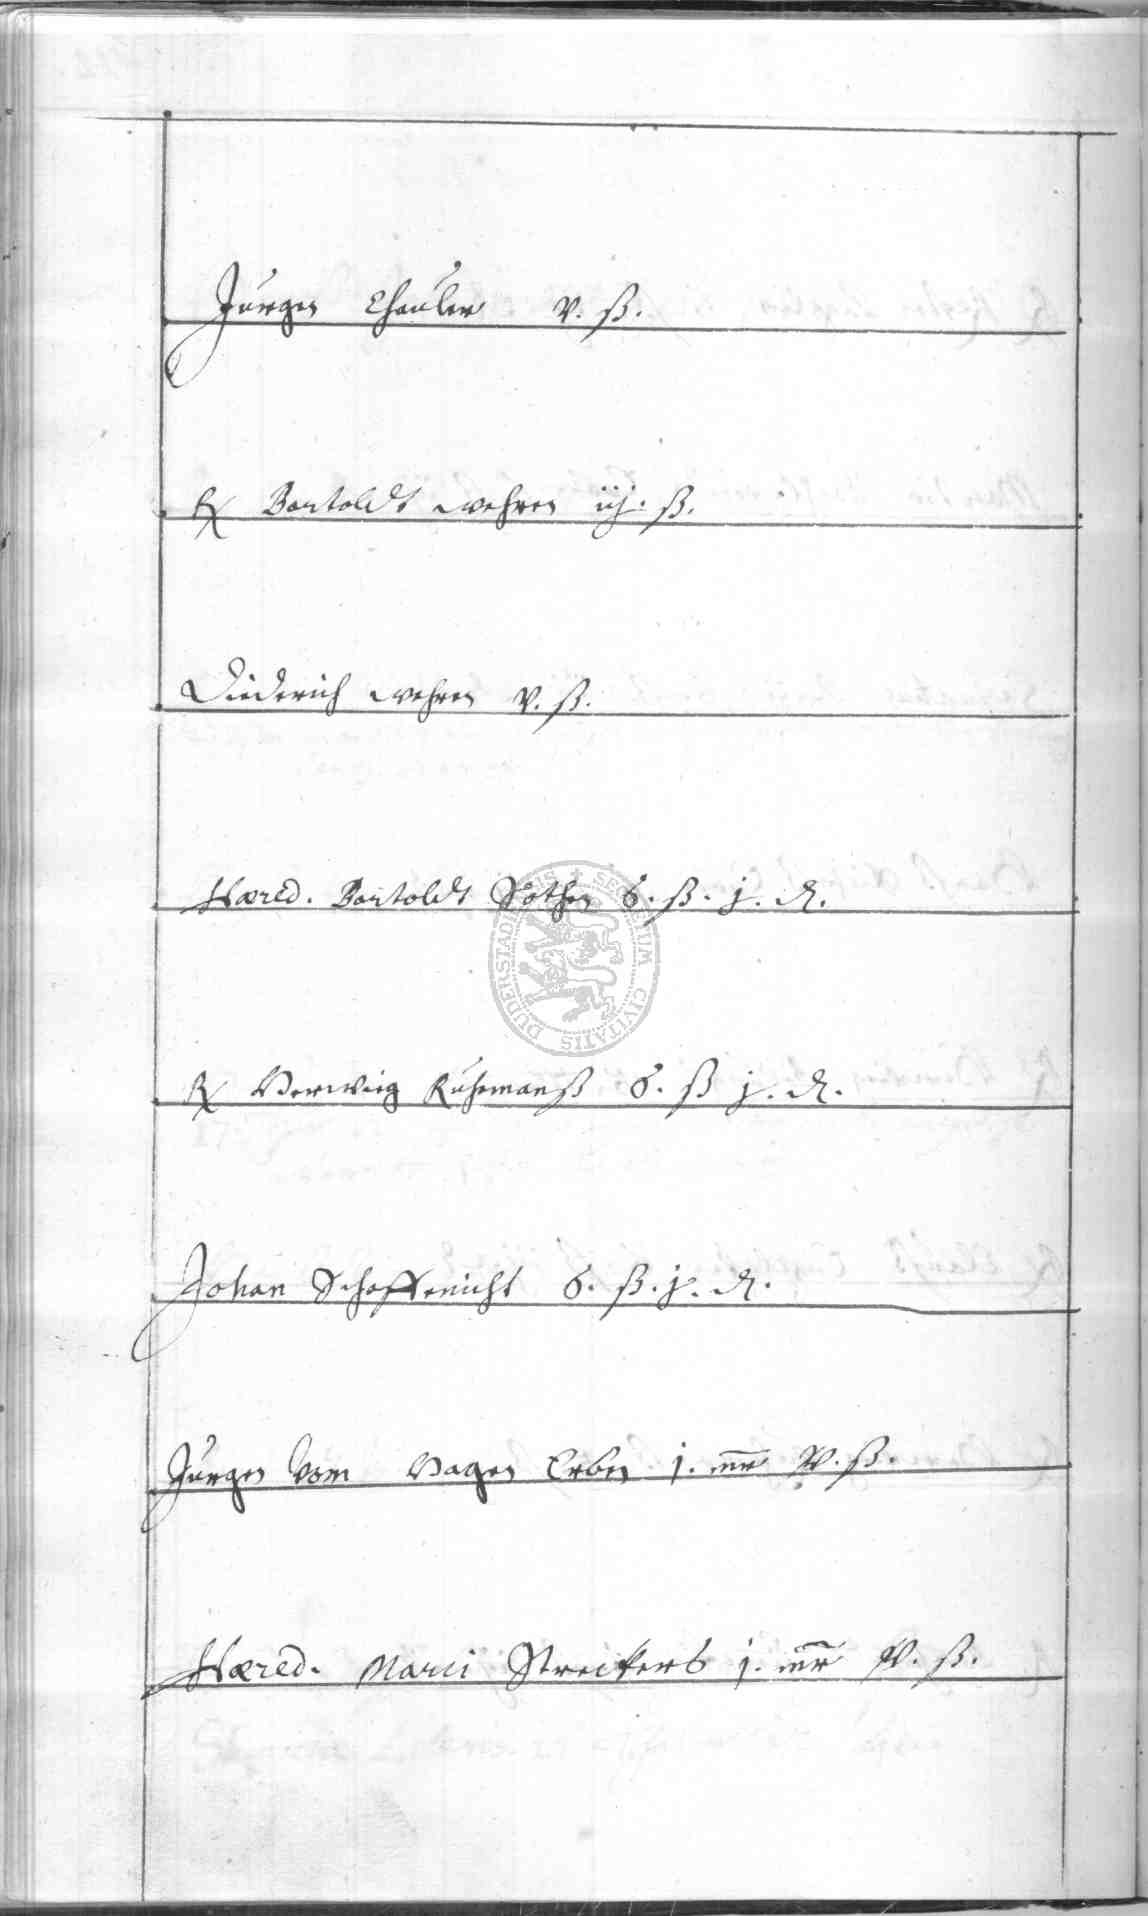 Jurgen Thauler v. ß.
Rx Bartoldt wehren iij. ß.
Diederich wehren v. ß.
Hæred. Bartoldt Sothen 6. ß. j. d.
Rx Herwieg Kuhemanß 6. ß j. d.
Johan Schaffenicht 6. ß. j. d.
Jurgen vom Hagen Erben j. mr v. ß.
Hæred. Marci Streckers j. mr v. ß.
SECRETUM CIVITATIS DUDERSTADIENSIS